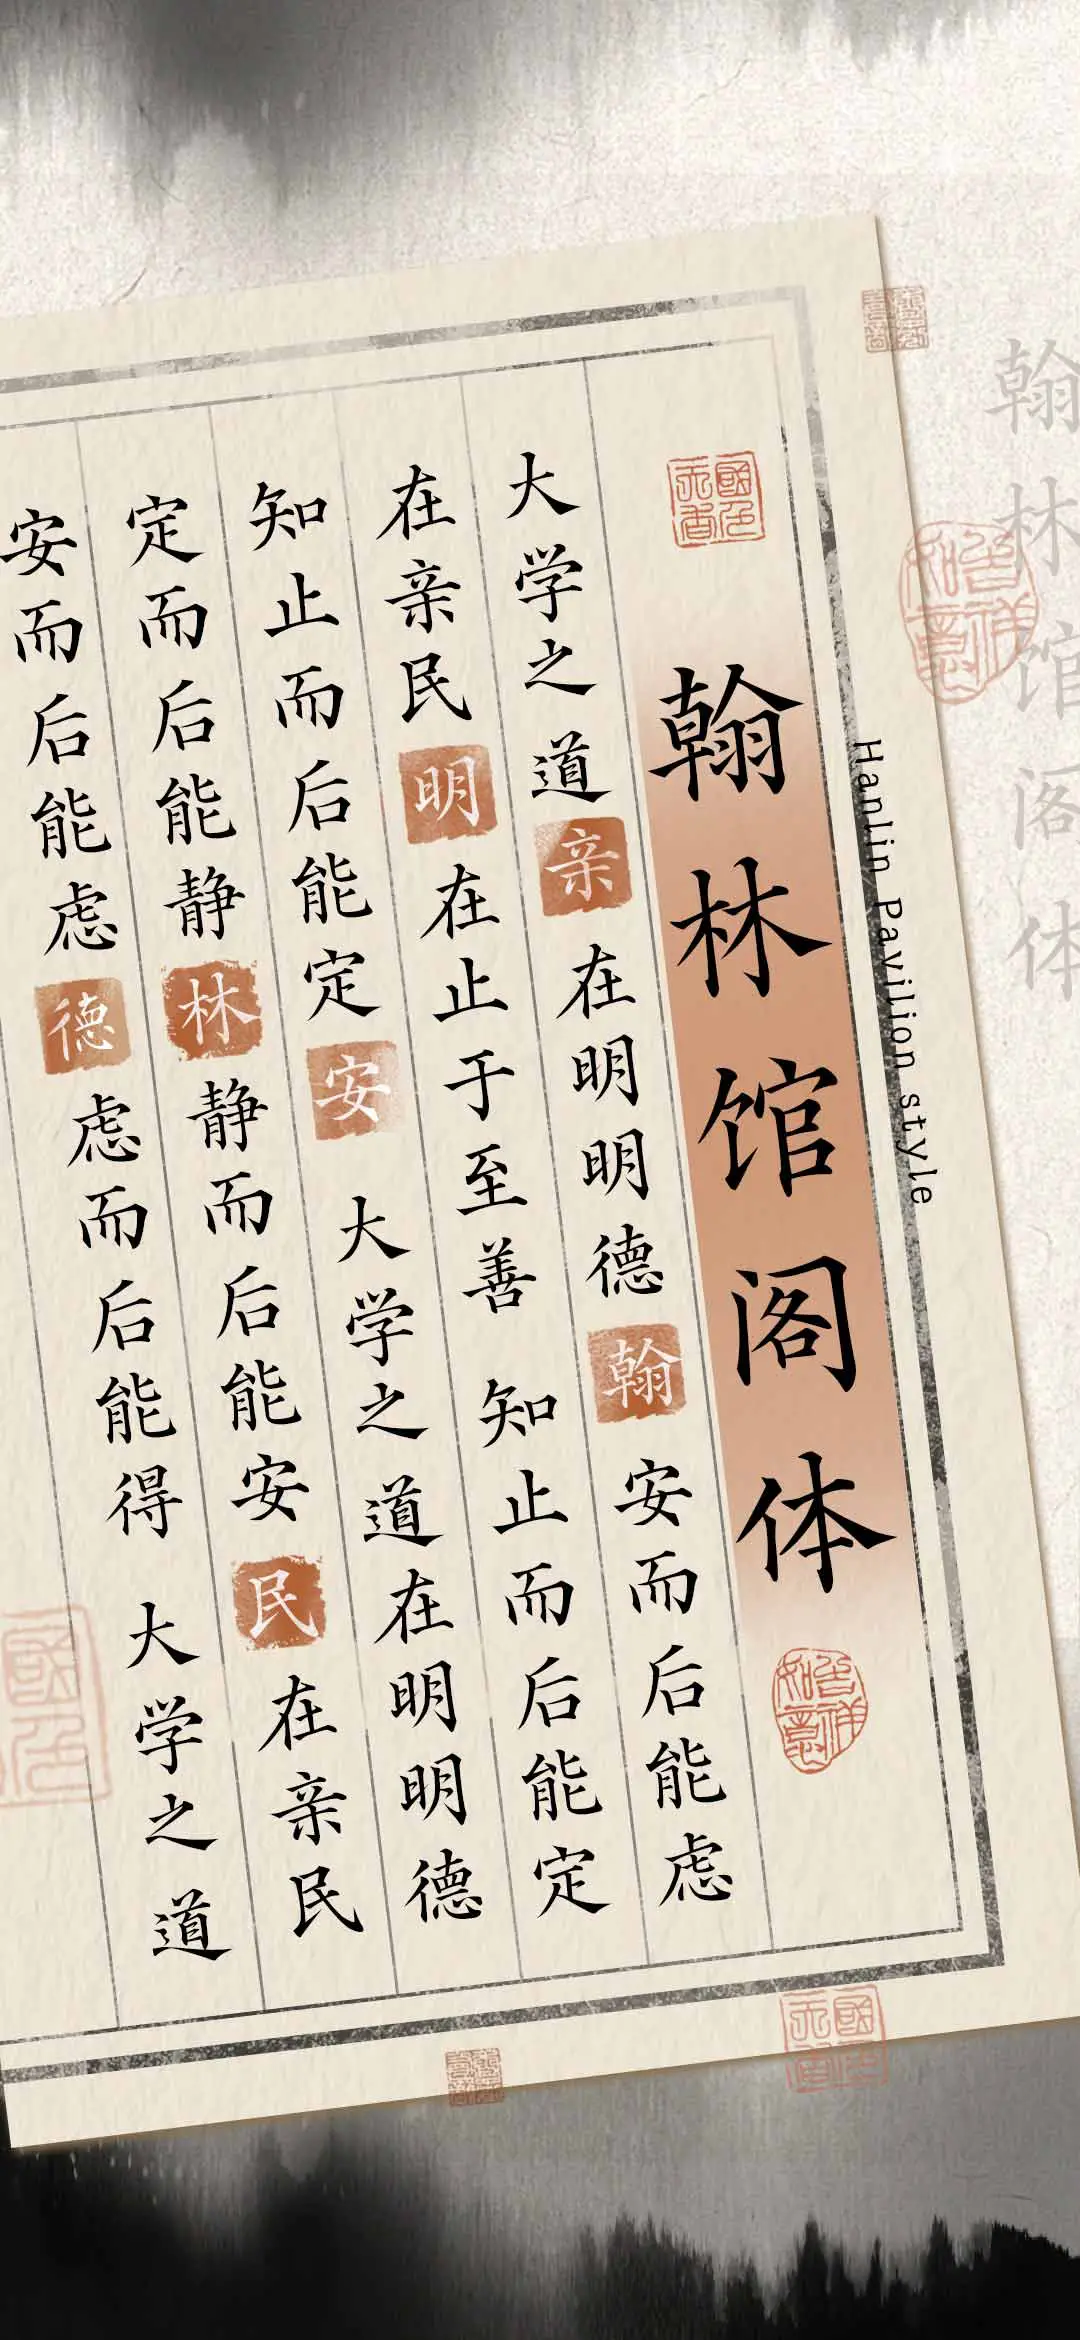 翰林馆阁体
国色天香
翰林馆阁体
Hanlin Pavilion style
吉祥如意
大学之道亲在明明德翰安而后能虑
在亲民明在止于至善 知止而后能定
知止而后能定安 大学之道在明明德
定而后能静林静而后能安民在亲民
安而后能虑德虑而后能得 大学之道